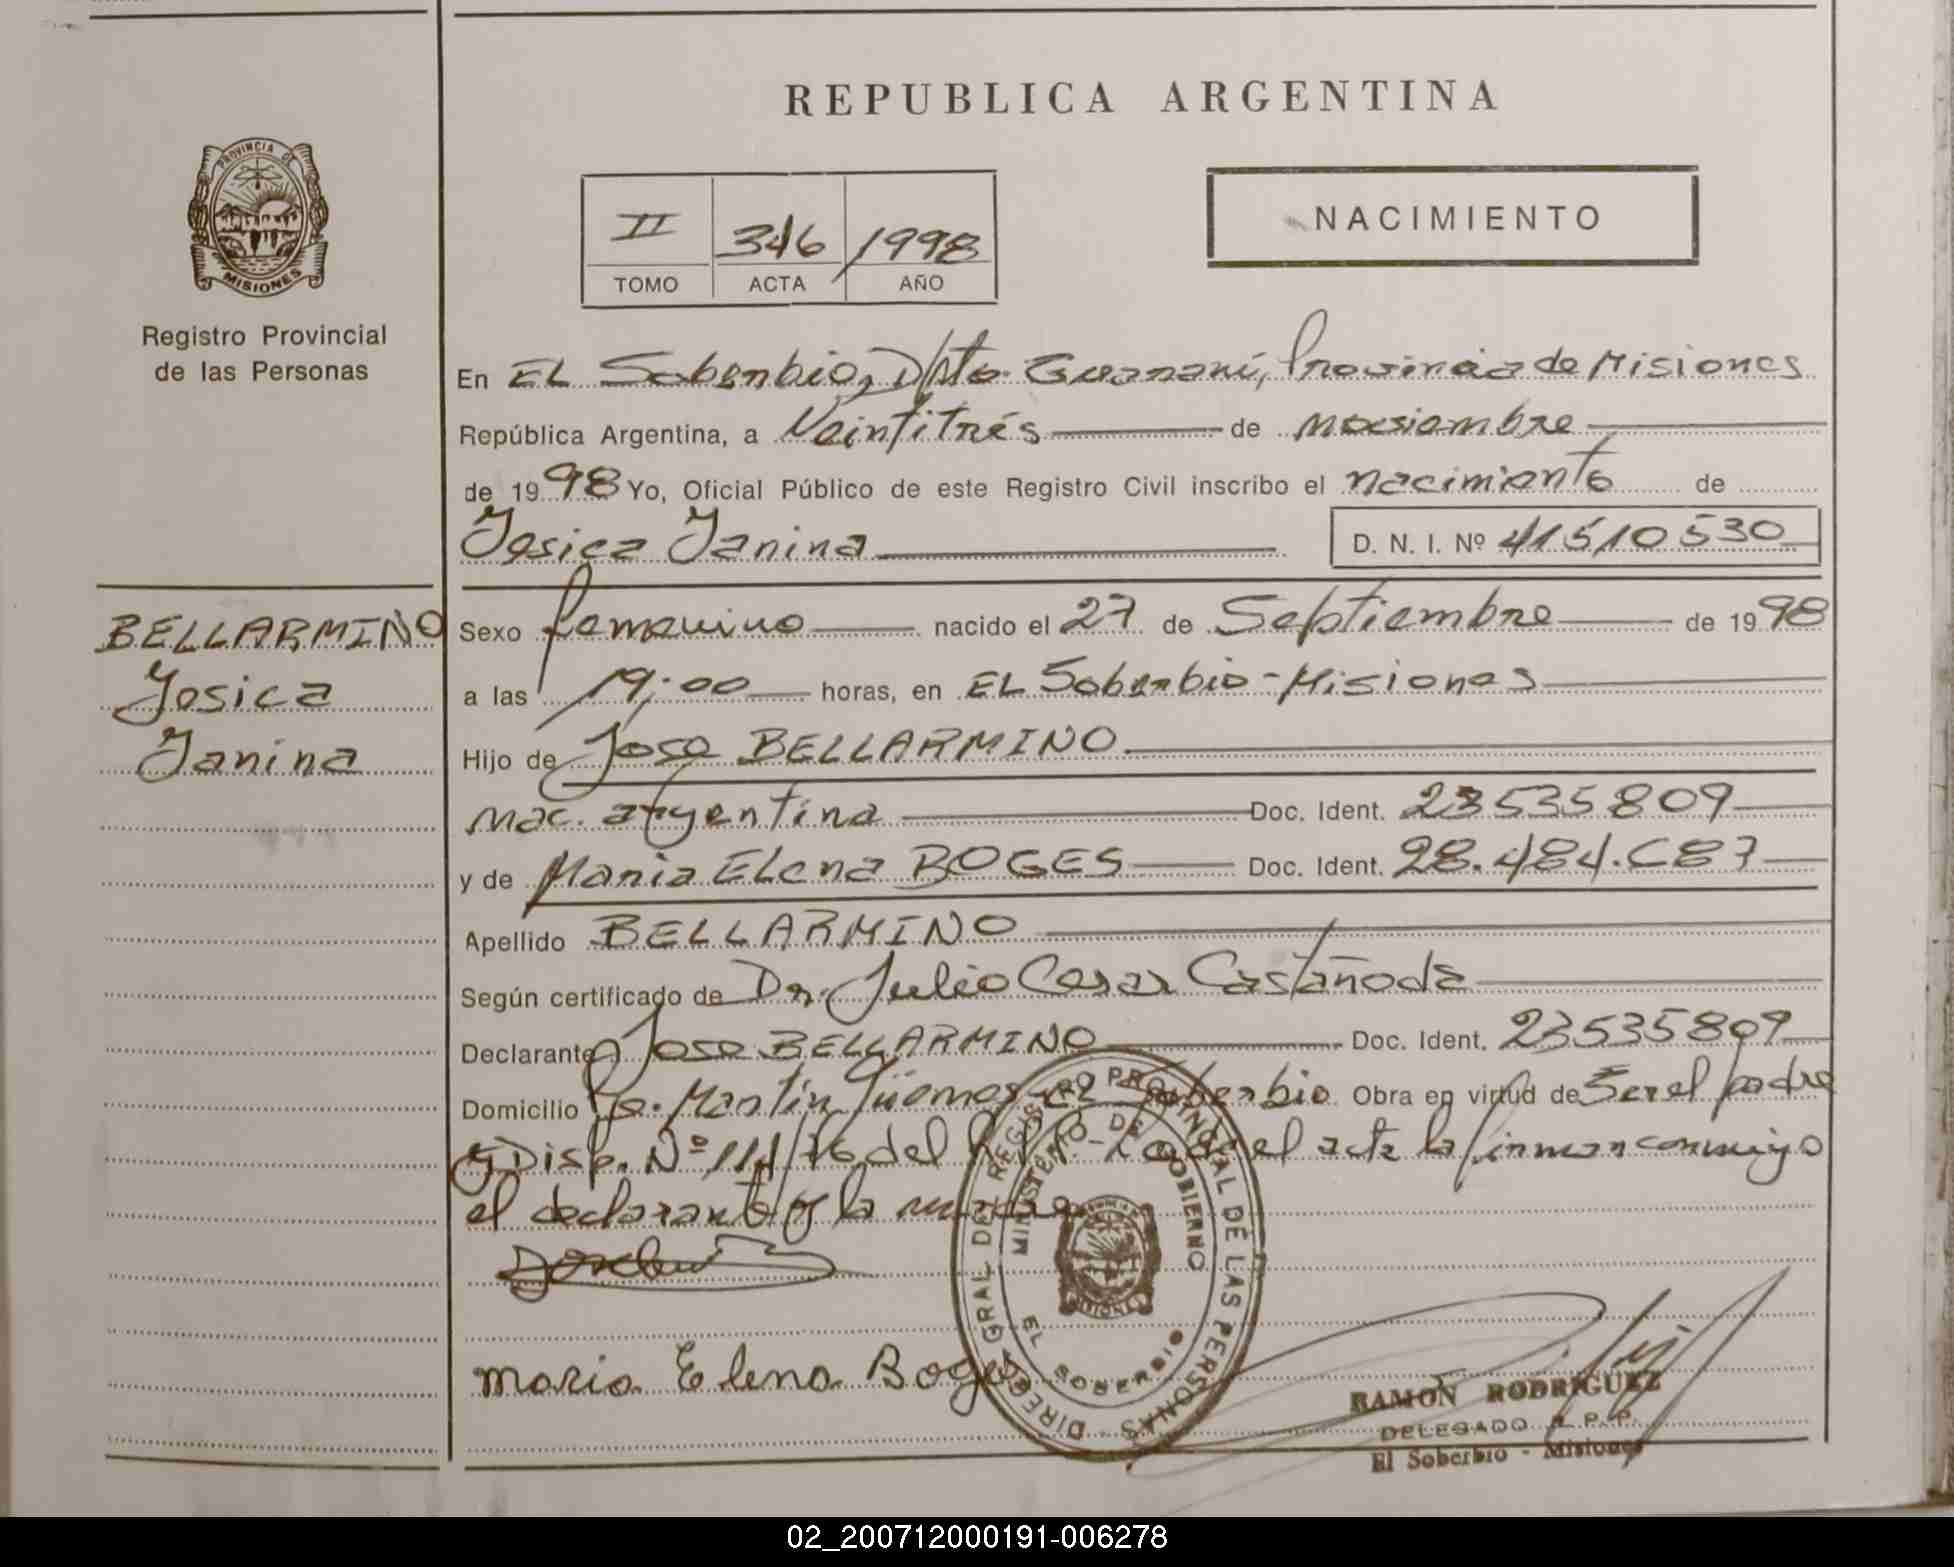 REPUBLICA ARGENTINA
PROVINCIA DE
MISIONES
Registro Provincial
de las Personas
II 346 1998
TOMO ACTA AÑO
NACIMIENTO
En EL Soberbio, Dpto. Guaraní, Provincia de Misiones
República Argentina, a Veintitrés de noviembre
de 1998 Yo, Oficial Público de este Registro Civil inscribo el nacimiento de
Yesica Yanina D. N. I. Nº 41510530
BELLARMINO
Yesica
Yanina
Sexo femenino nacido el 27 de Septiembre de 1998
a las 19:00 horas, en EL Soberbio - Misiones
Hijo de Jose BELLARMINO
nac. argentina Doc. Ident. 23535809
y de Maria ELena BOGES Doc. Ident. 28.484.687
Apellido BELLARMINO
Según certificado de Dr. Julio Cesar Castañeda
Declarante Jose BELLARMINO Doc. Ident. 23535809
Domicilio Martín Güemes EL Soberbio Obra en virtud de Ser el padre
y Disp. Nº 111/76 del R.P.P. Leída el acta la firman conmigo
el declarante y la madre
maria Elena Boges
DIREC. GRAL DEL REGISTRO PROVINCIAL DE LAS PERSONAS
MINISTERIO DE GOBIERNO
MISIONES
EL SOBERBIO
RAMON RODRIGUEZ
DELEGADO R. P. P.
El Soberbio - Misiones
02_200712000191-006278